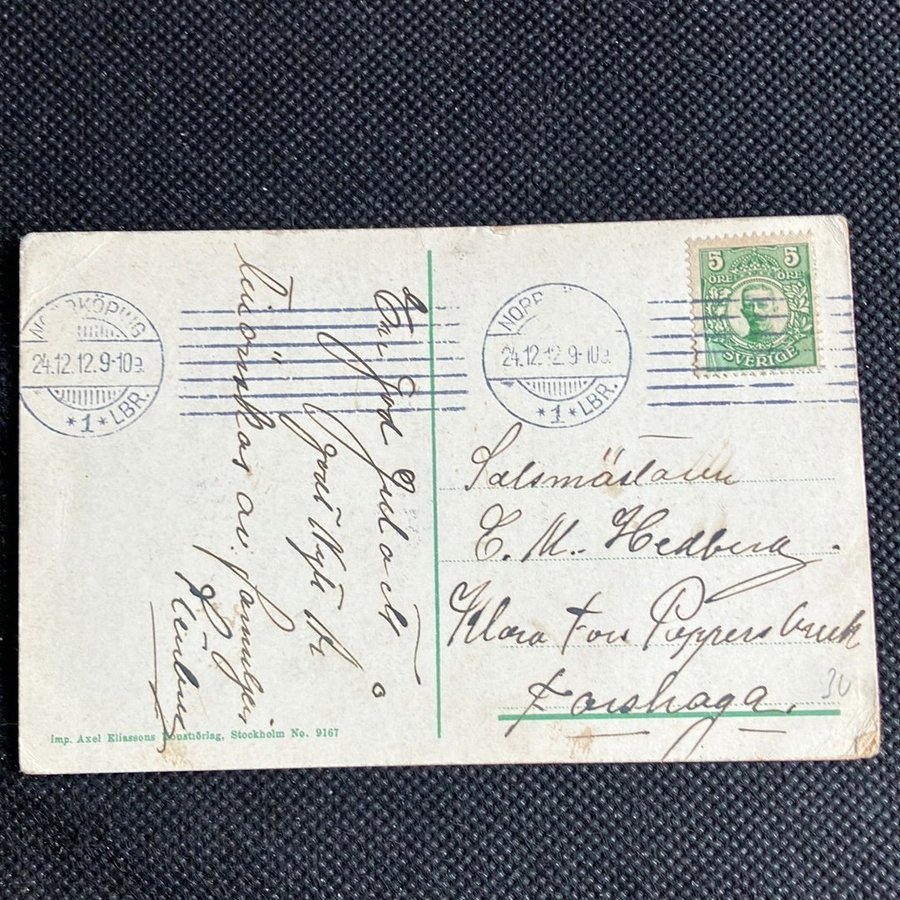 NORRKÖPING
24.12.12.9-10a.
*1*LBR.
En god Jul och
godt Nytt År
tillönskas av familjen
NORR
24.12.12.9-10a.
*1*LBR.
5 5
ÖRE ÖRE
SVERIGE
Salsmästaren
C. M. Hedberg
Klara Fors Pappersbruk
Forshaga.
30
Imp. Axel Eliassons Konstförlag, Stockholm No. 9167